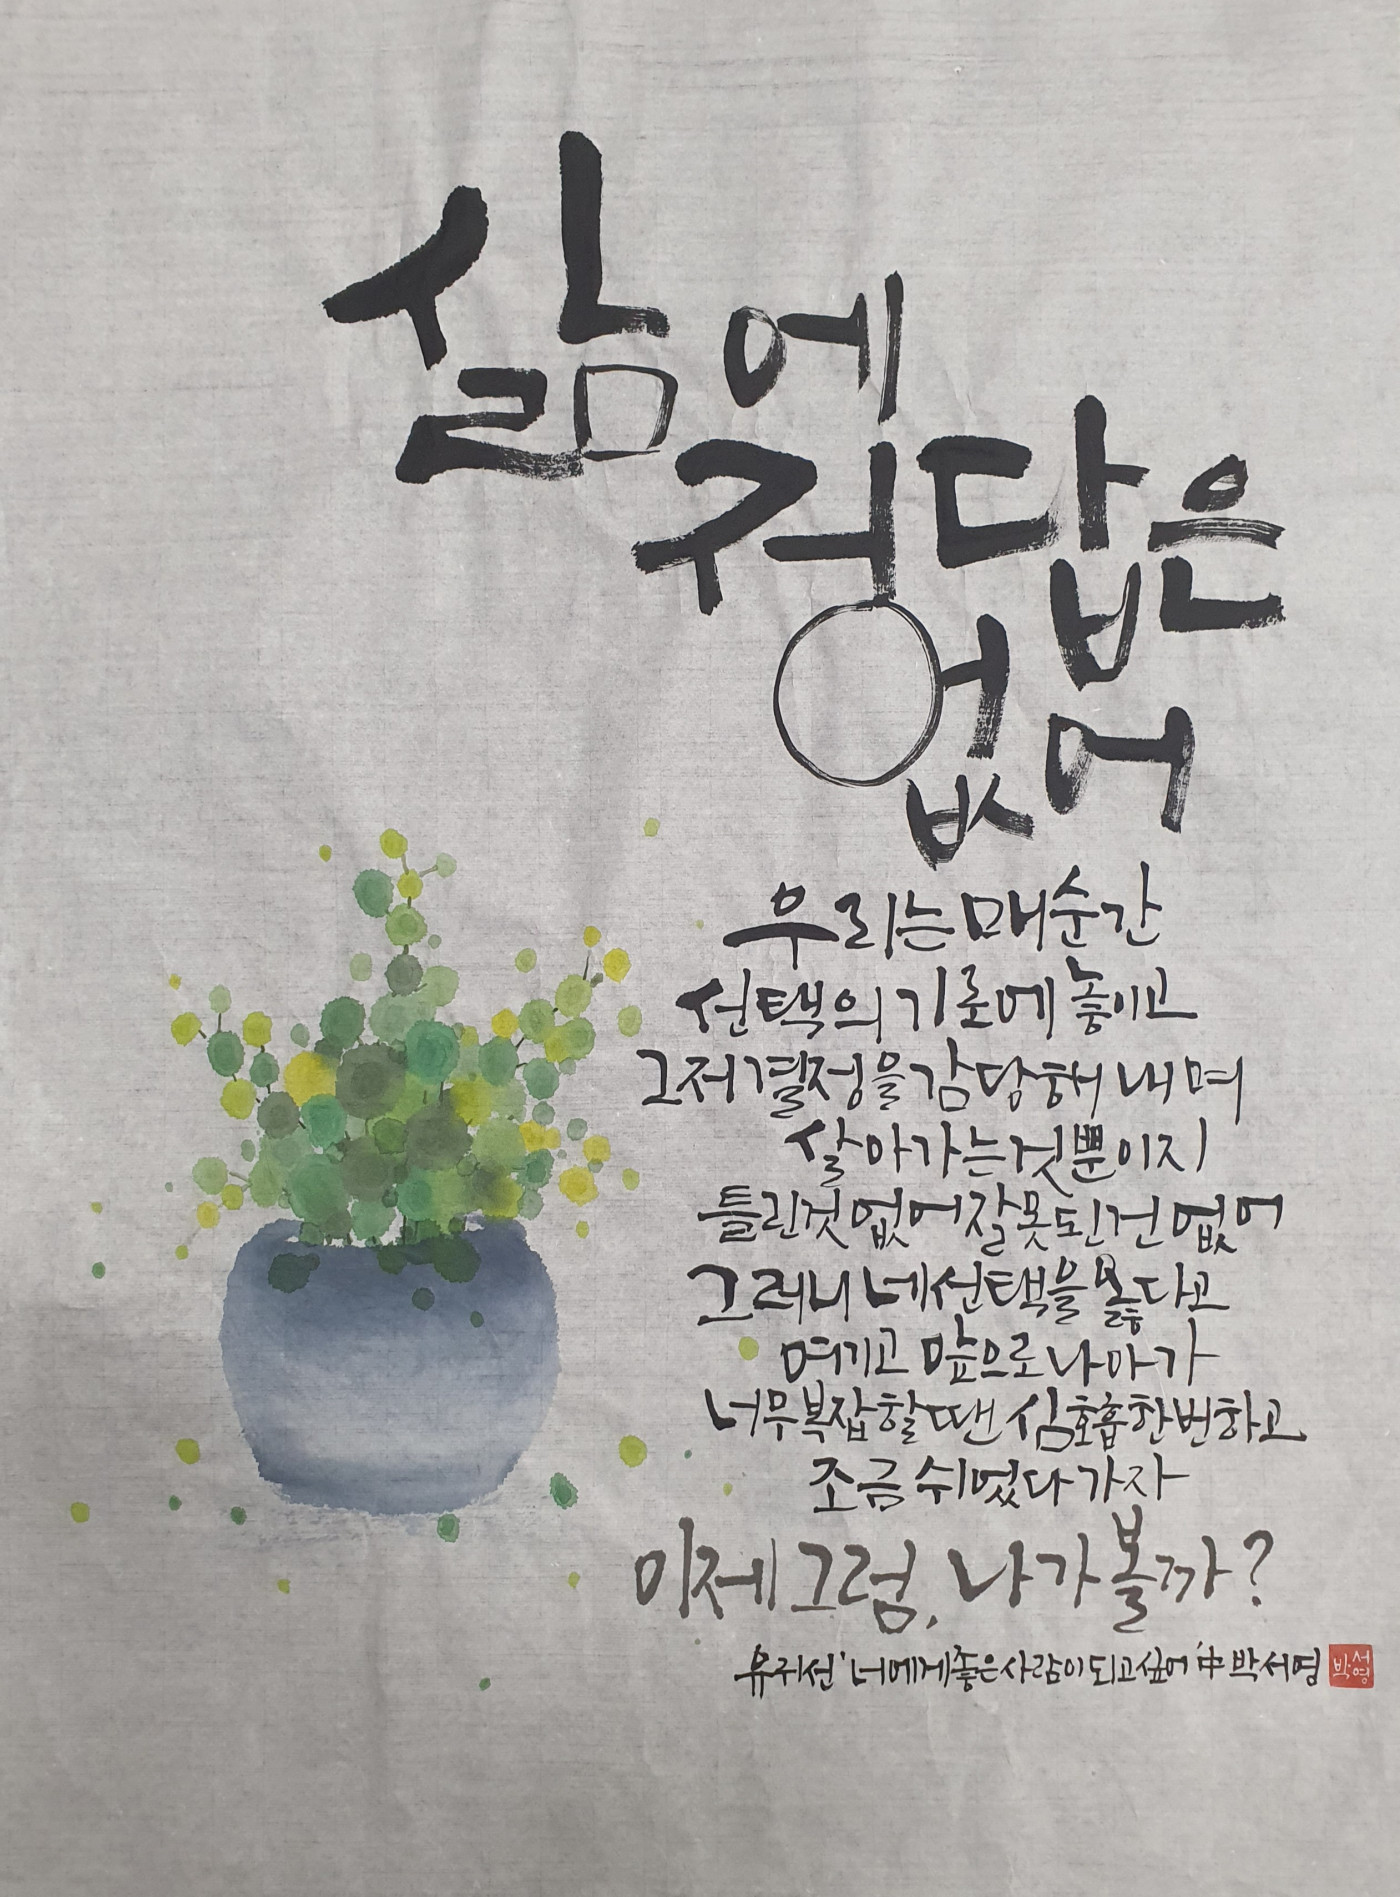 삶에
정답은
없어
우리는 매순간
선택의 기로에 놓이고
그저 결정을 감당해 내며
살아가는것뿐이지
틀린것없어 잘못된건 없어
그러니 네선택을 옳다고
여기고 앞으로 나아가
너무복잡할땐 심호흡한번하고
조금 쉬었다 가자
이제 그럼, 나가볼까?
유귀선 '너에게좋은사람이되고싶어' 中 박서영
박서영